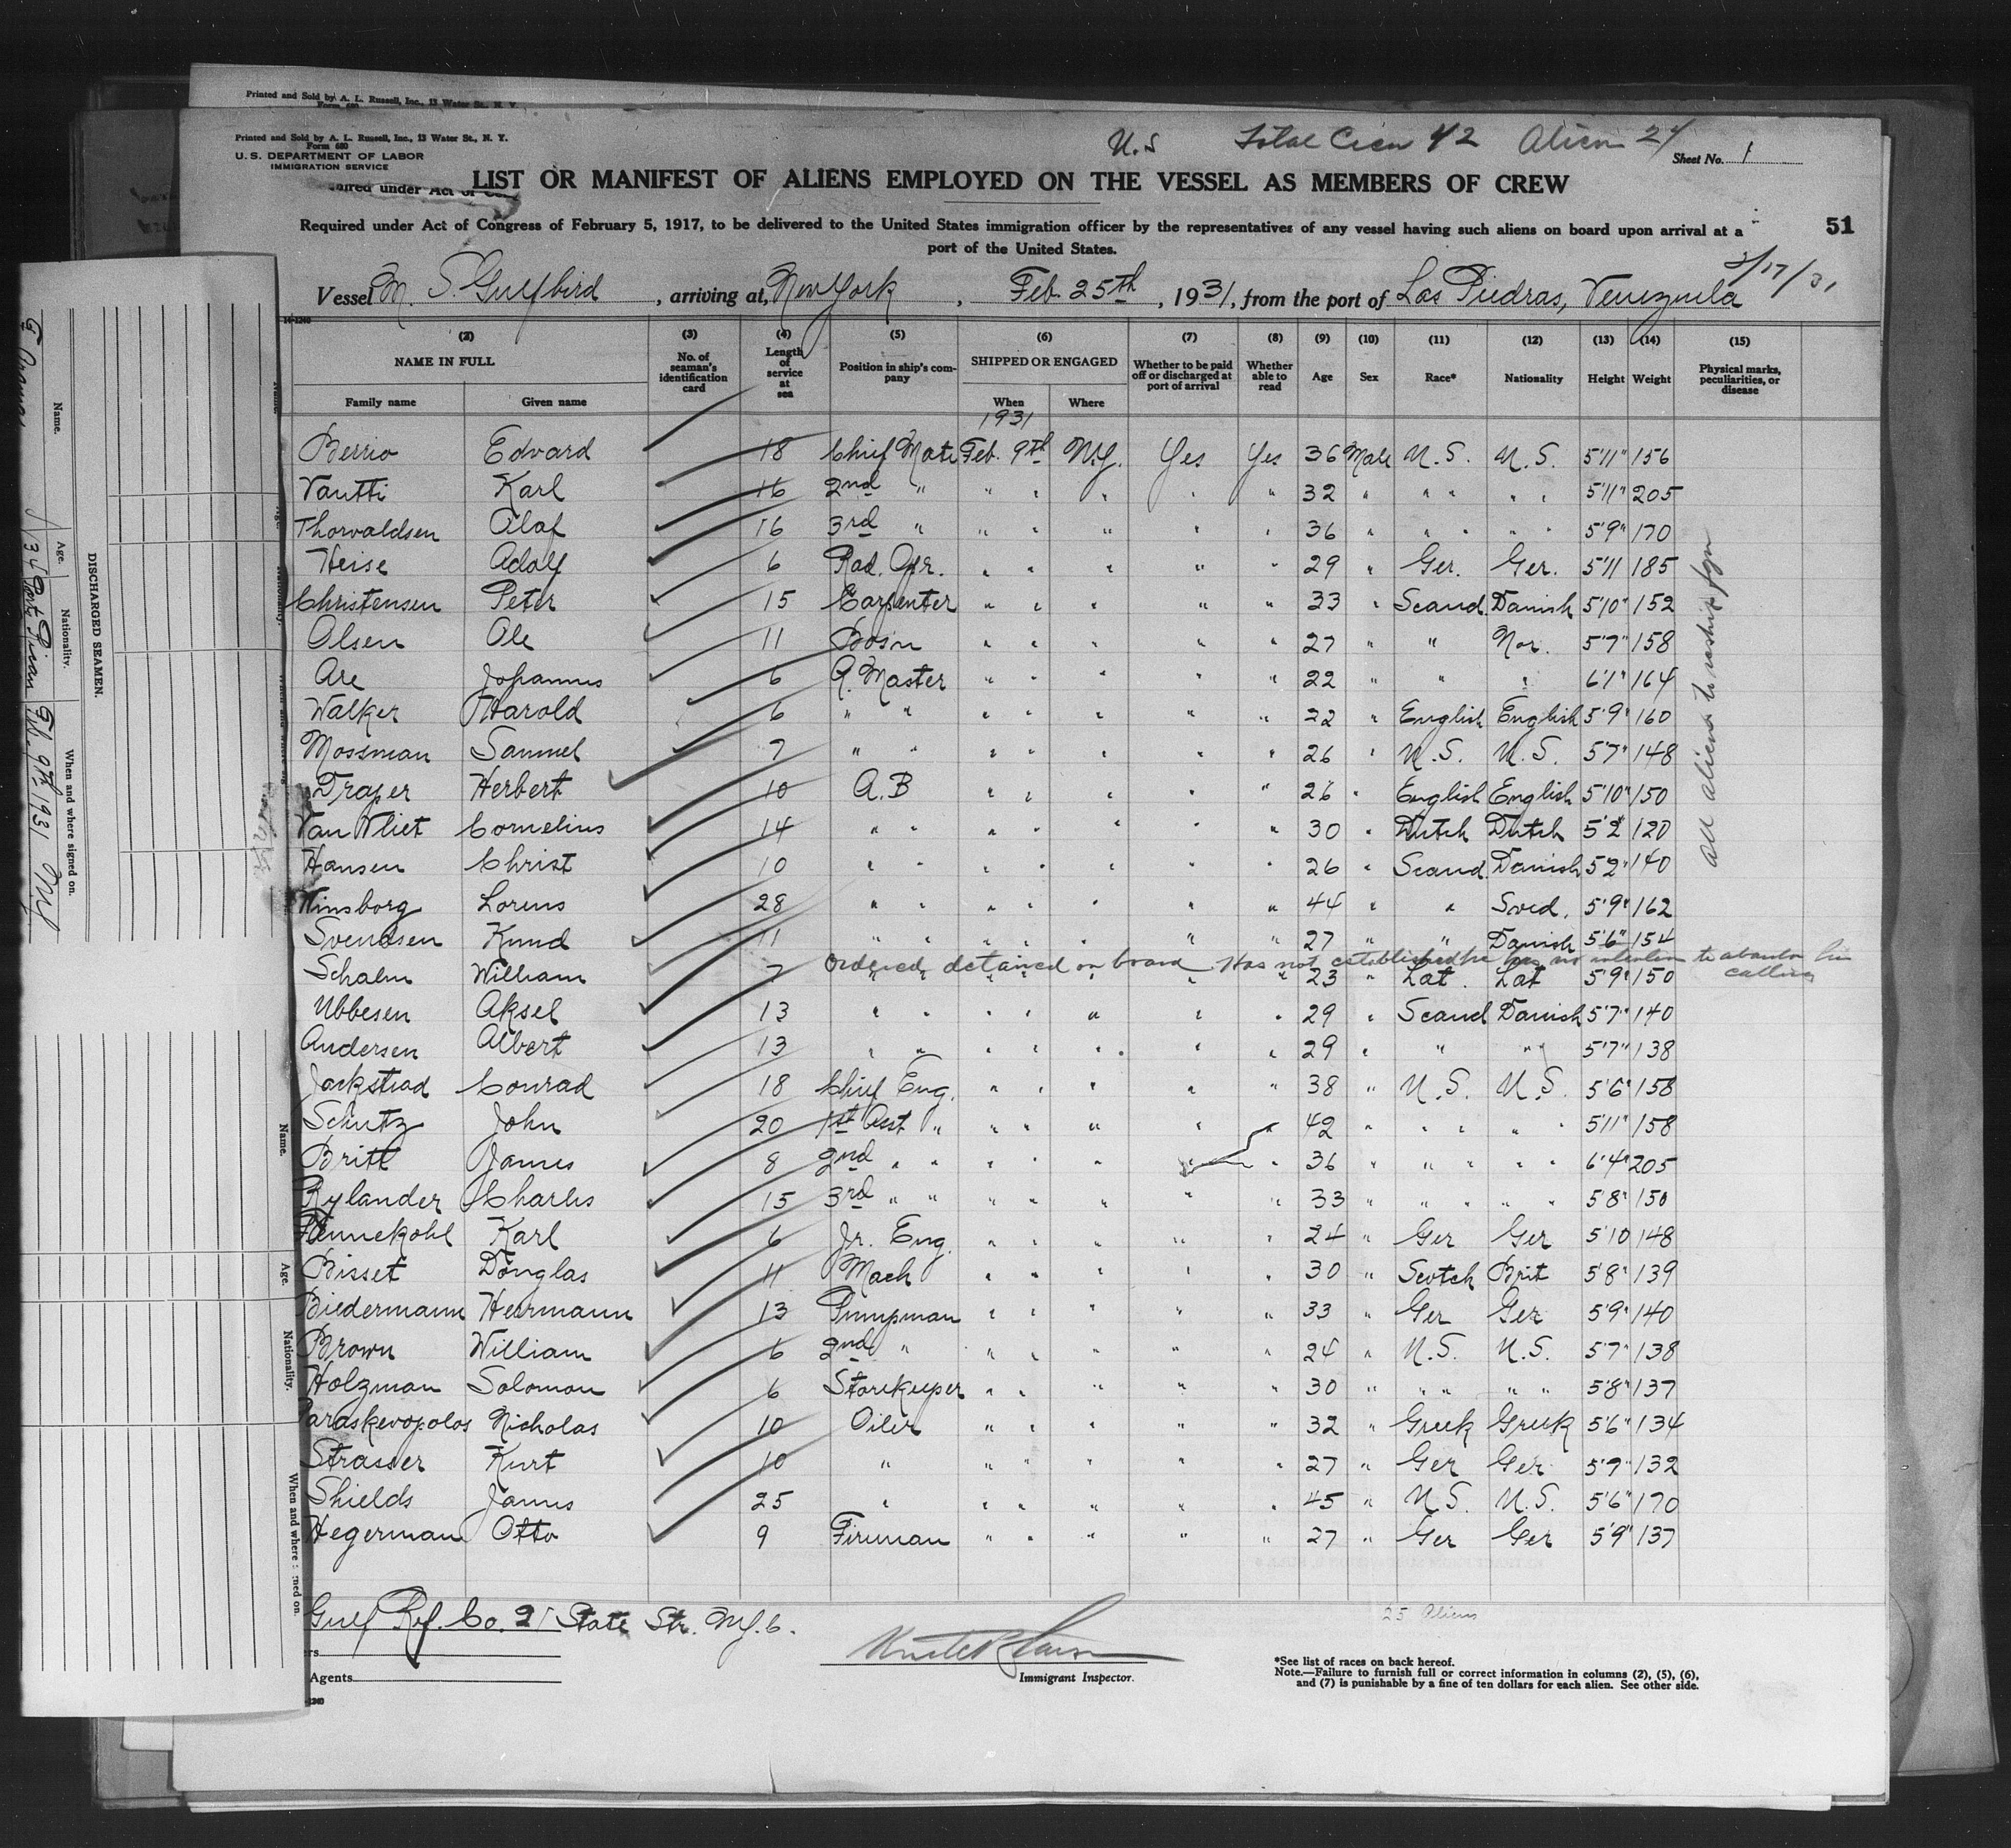 Printed and Sold by A. L. Russell, Inc., 13 Water St., N. Y.
Form 680
Printed and Sold by A. L. Russell, Inc., 13 Water St., N. Y.
Form 680
U. S. DEPARTMENT OF LABOR
IMMIGRATION SERVICE
U.S Total Crew 42 Alien 24
Sheet No. 1
LIST OR MANIFEST OF ALIENS EMPLOYED ON THE VESSEL AS MEMBERS OF CREW
Required under Act of Congress of February 5, 1917, to be delivered to the United States immigration officer by the representatives of any vessel having such aliens on board upon arrival at a
port of the United States.
51
Vessel M. S. Gulfbird, arriving at, New York, Feb. 25th, 1931, from the port of Las Piedras, Venezuela
14-1240
(2) (3) (4) (5) (6) (7) (8) (9) (10) (11) (12) (13) (14) (15)
NAME IN FULL No. of seaman's identification card Length of service at sea Position in ship's company SHIPPED OR ENGAGED Whether to be paid off or discharged at port of arrival Whether able to read Age Sex Race* Nationality Height Weight Physical marks, peculiarities, or disease
Family name Given name When Where
1931
Berrio Edward 18 Chief Mate Feb. 9th N.Y. Yes Yes 36 Male U.S. U.S. 5'11" 156
Vautti Karl 16 2nd " " " " " " 32 " " " " " 5'11" 205
Thorvaldsen Olaf 16 3rd " " " " " " 36 " " " " " 5'9" 170
Heise Adolf 6 Rad. Opr. " " " " " 29 " Ger. Ger. 5'11 185
Christensen Peter 15 Carpenter " " " " " 33 " Scand. Danish 5'10" 152
Olsen Ole 11 Bosn " " " " " 27 " " Nor. 5'7" 158
Are Johannes 6 Q. Master " " " " " 22 " " " 6'1" 164
Walker Harold 6 " " " " " " " 22 " English English 5'9" 160
Mossman Samuel 7 " " " " " " " 26 " U.S. U.S. 5'7" 148
Draper Herbert 10 A.B " " " " " 26 " English English 5'10" 150
Van Vliet Cornelius 14 " " " " " " " 30 " Dutch Dutch 5'2" 120
Hansen Christ 10 " " " " " " " 26 " Scand. Danish 5'2" 140
Lorens 28 " " " " " " " 44 " " Swed. 5'9" 162
Svendsen Knud 11 " " " " " " " 27 " " Danish 5'6" 154
Ordered detained on board Has not established he has no intention to abandon his calling
Schalm William 7 " " " " " " " 23 " Lat. Lat 5'9" 150
Ubbesen Aksel 13 " " " " " " " 29 " Scand Danish 5'7" 140
Andersen Albert 13 " " " " " " " 29 " " " 5'7" 138
Jackstead Conrad 18 Chief Eng. " " " " " 38 " U.S. U.S. 5'6" 158
Schutz John 20 1st Asst " " " " " " 42 " " " " " 5'11" 158
Britt James 8 2nd " " " " " " " 36 " " " " " 6'4" 205
Rylander Charles 15 3rd " " " " " " " 33 " " " " " 5'8" 150
Karl 6 Jr. Eng. " " " " " 24 " Ger Ger 5'10 148
Bisset Douglas 11 Mach " " " " " 30 " Scotch Brit 5'8" 139
Biedermann Herrmann 13 Pumpman " " " " " 33 " Ger Ger 5'9" 140
Brown William 6 2nd " " " " " " 24 " U.S. U.S. 5'7" 138
Holzman Solomon 6 Storekeeper " " " " " 30 " " " " " 5'8" 137
Paraskevopolos Nicholas 10 Oiler " " " " " 32 " Greek Greek 5'6" 134
Strasser Kurt 10 " " " " " " 27 " Ger Ger 5'7" 132
Shields James 25 " " " " " " 45 " U.S. U.S. 5'6" 170
Hegerman Otto 9 Fireman " " " " " 27 " Ger Ger 5'9" 137
All aliens to reship fgn
Gulf Ref. Co. 21 State Str. N.Y.C.
25 Aliens
Agents
Immigrant Inspector.
*See list of races on back hereof.
Note.—Failure to furnish full or correct information in columns (2), (5), (6),
and (7) is punishable by a fine of ten dollars for each alien. See other side.
DISCHARGED SEAMEN.
Name. Age. Nationality. When and where signed on.
Feb. 9th 1931 N.Y
Name. Age. Nationality.